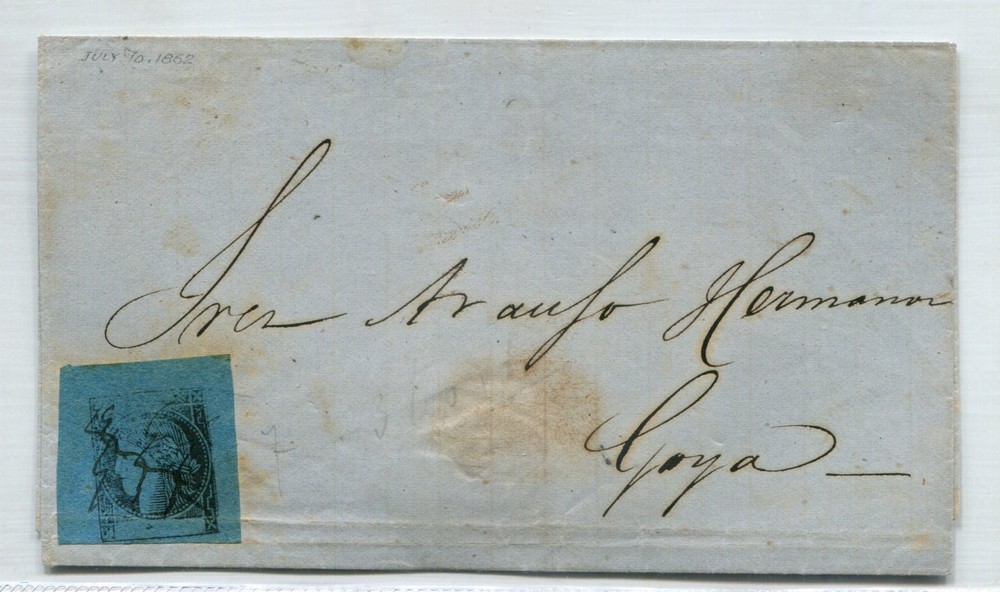 JULY 10. 1862
Sres Araujo Hermanos
Goya